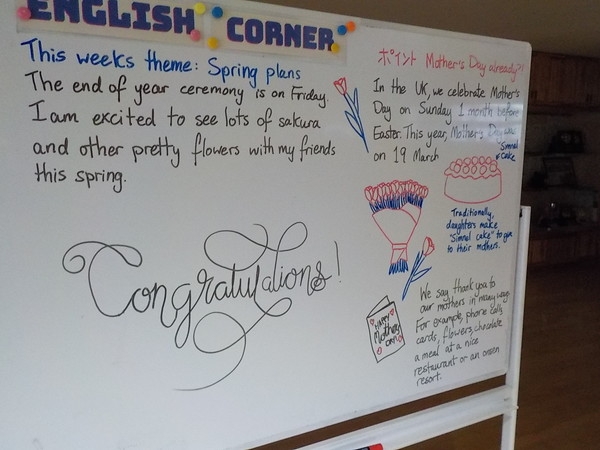 ENGLISH CORNER
This weeks theme: Spring plans
The end of year ceremony is on Friday.
I am excited to see lots of sakura
and other pretty flowers with my friends
this spring.
Congratulations!
ポイント Mother's Day already?!
In the UK, we celebrate Mother's
Day on Sunday 1 month before
Easter. This year, Mother's Day was
on 19 March
"Simnel
cake
Traditionally,
daughters make
"Simnel cake" to give
to their mothers.
HAPPY
Mothers
DAY!
We say thank you to
our mothers in many ways
For example, phone calls,
cards, flowers, chocolate
a meal at a nice
restaurant or an onsen
resort.